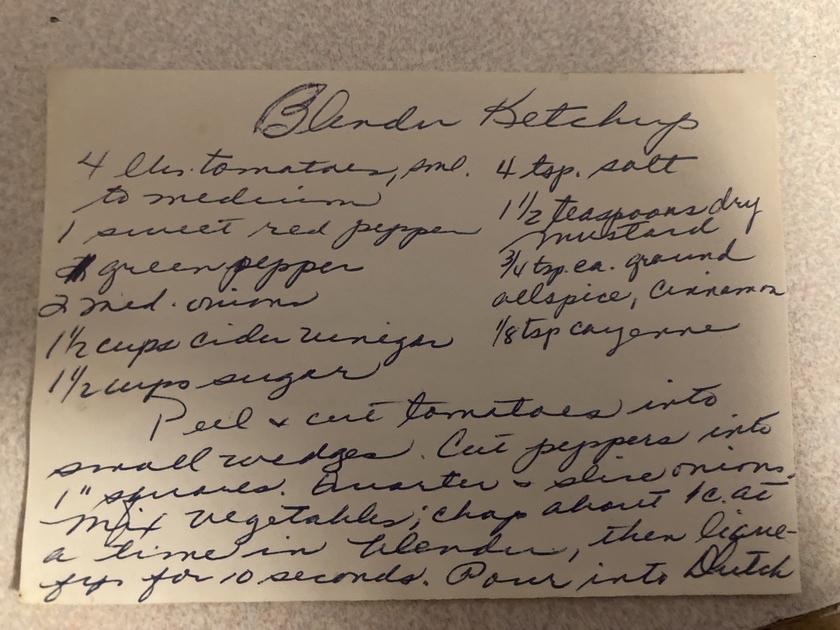 Blender Ketchup
4 lbs. tomatoes, sml.
to medium
1 sweet red pepper
1 green pepper
2 med. onions
1 1/2 cups cider vinegar
1 1/2 cups sugar
4 tsp. salt
1 1/2 teaspoons dry
mustard
3/4 tsp. ea. ground
allspice, cinnamon
1/8 tsp cayenne
Peel & cut tomatoes into
small wedges. Cut peppers into
1" squares. Quarter & slice onions.
Mix vegetables; chop about 1 c. at
a time in blender, then lique-
fy for 10 seconds. Pour into Dutch